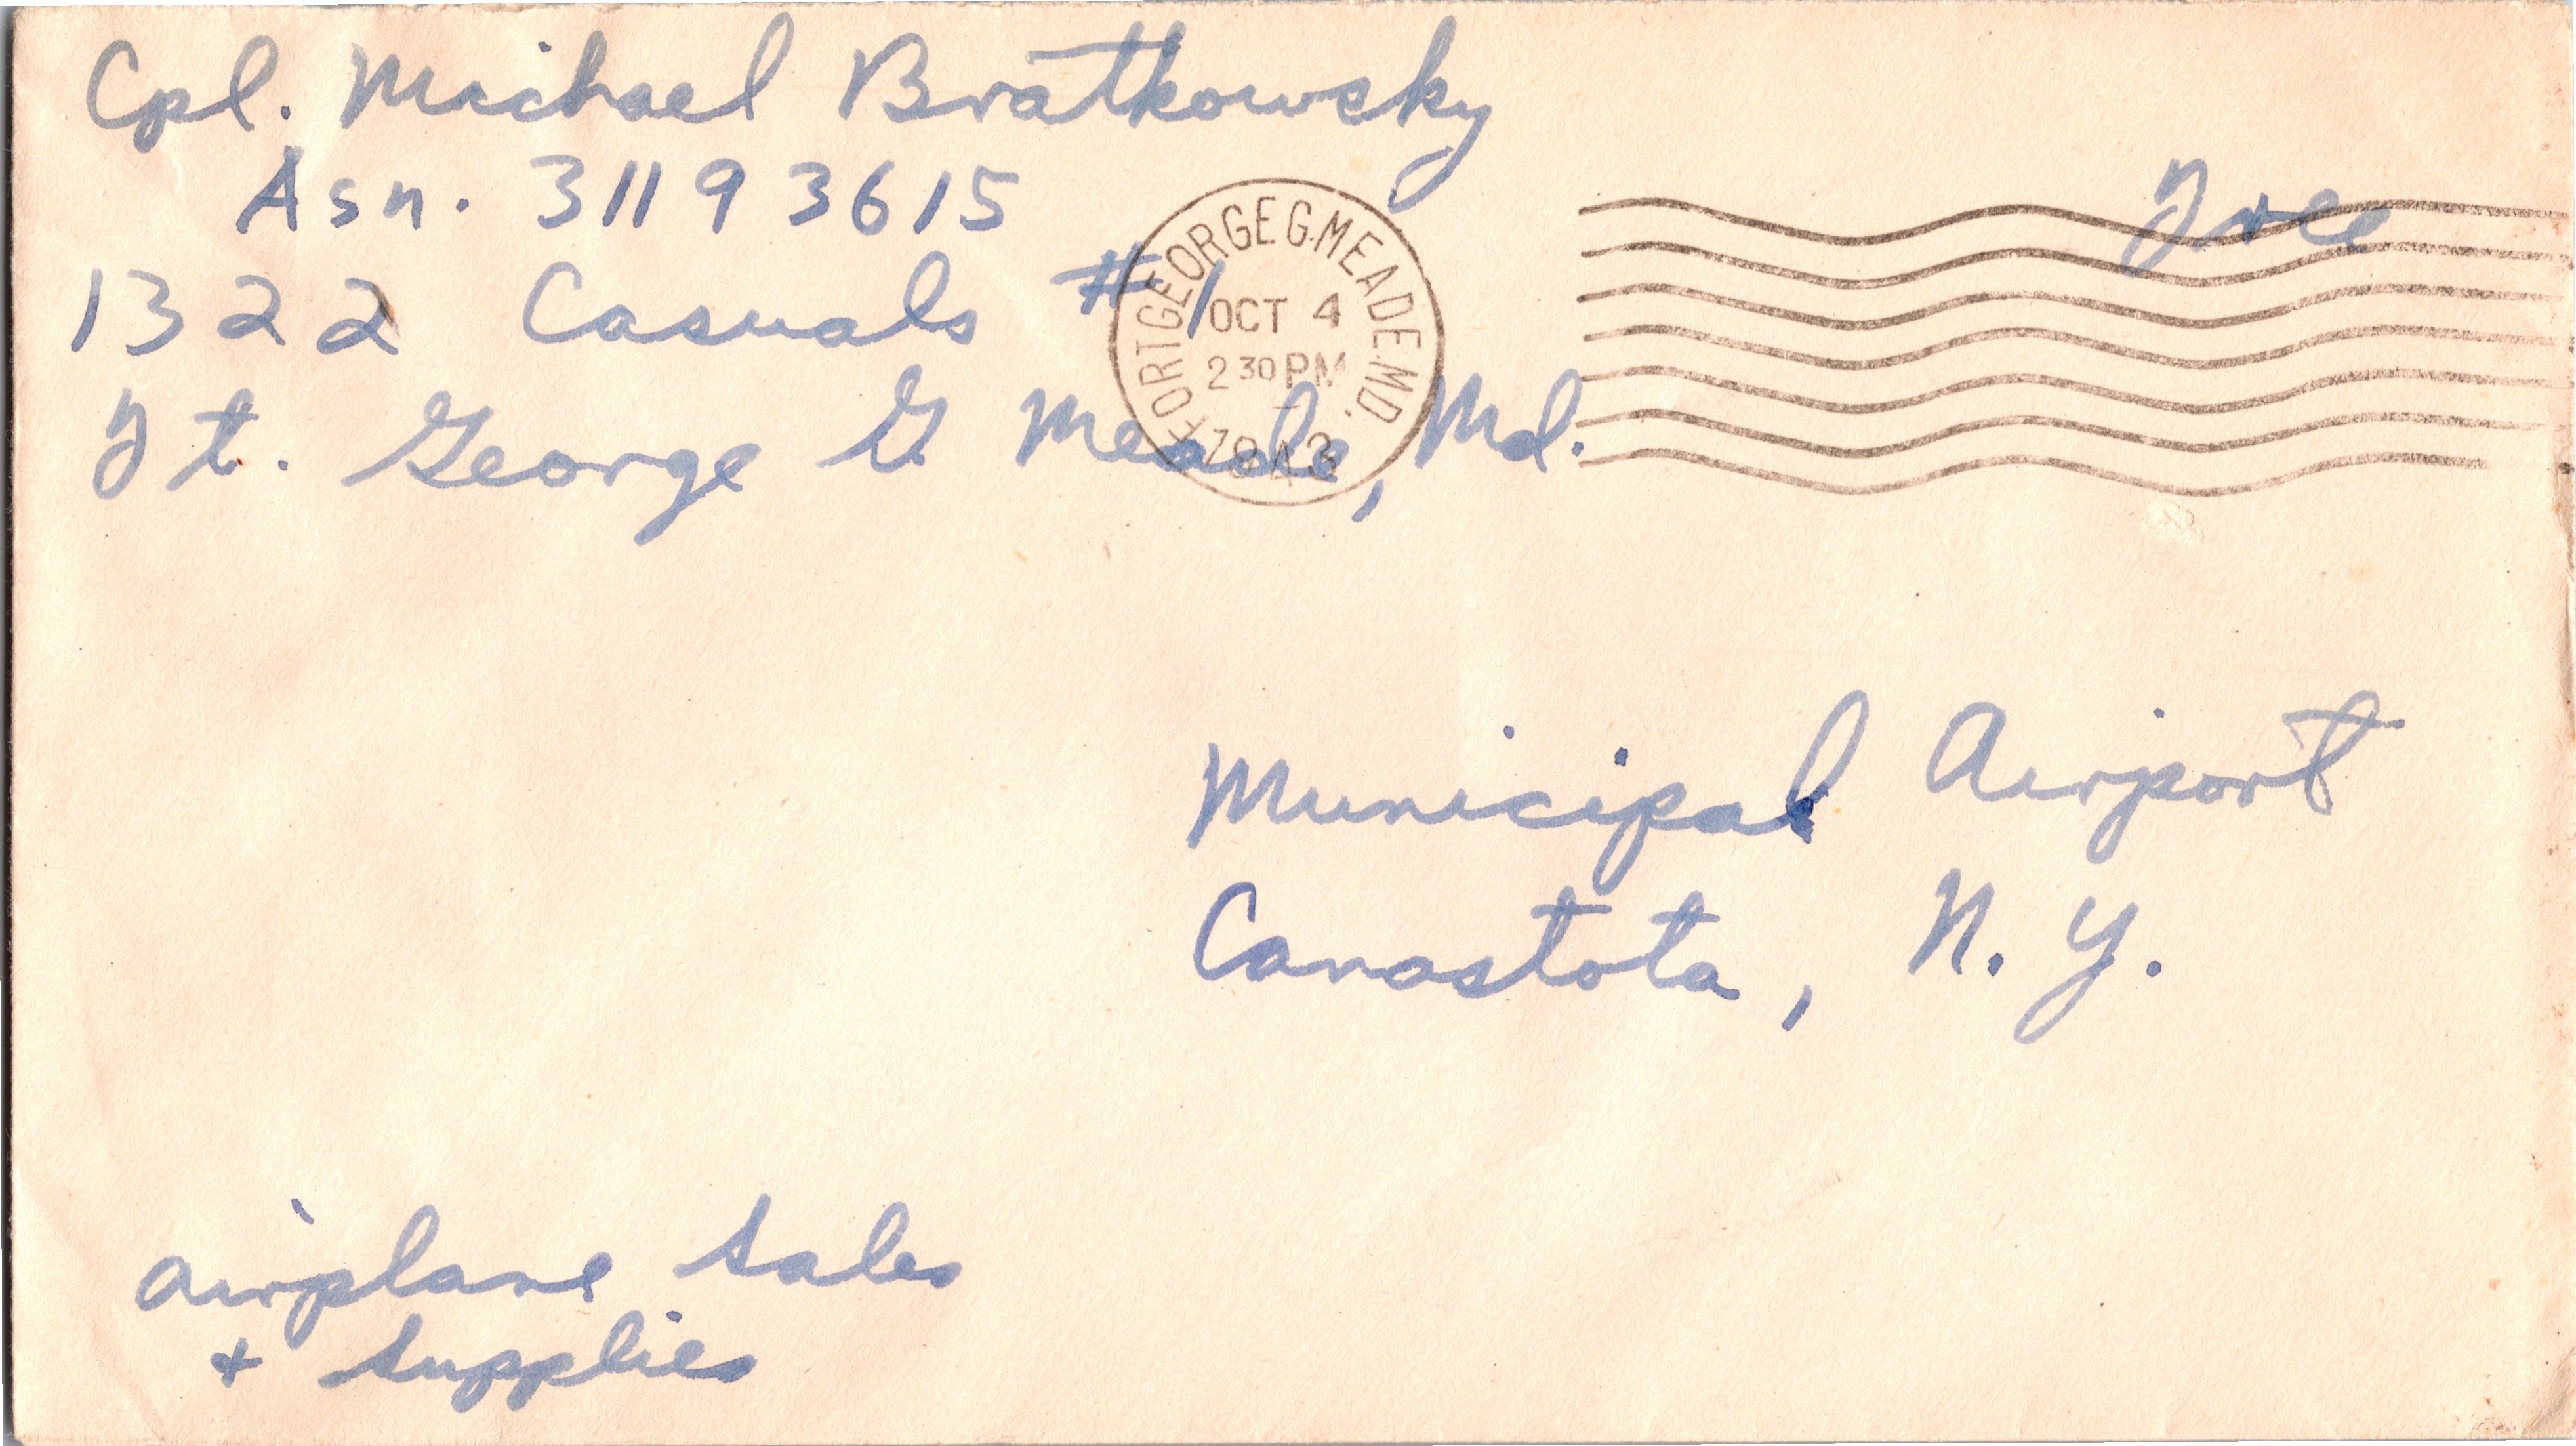 Cpl. Michael Bratkowsky
Asn. 31193615
1322 Casuals #1
Ft. George G Meade, Md.
FORT GEORGE G. MEADE MD.
OCT 4
2 30 PM
1943
Free
Municipal Airport
Canastota, N. Y.
airplane sales
+ supplies